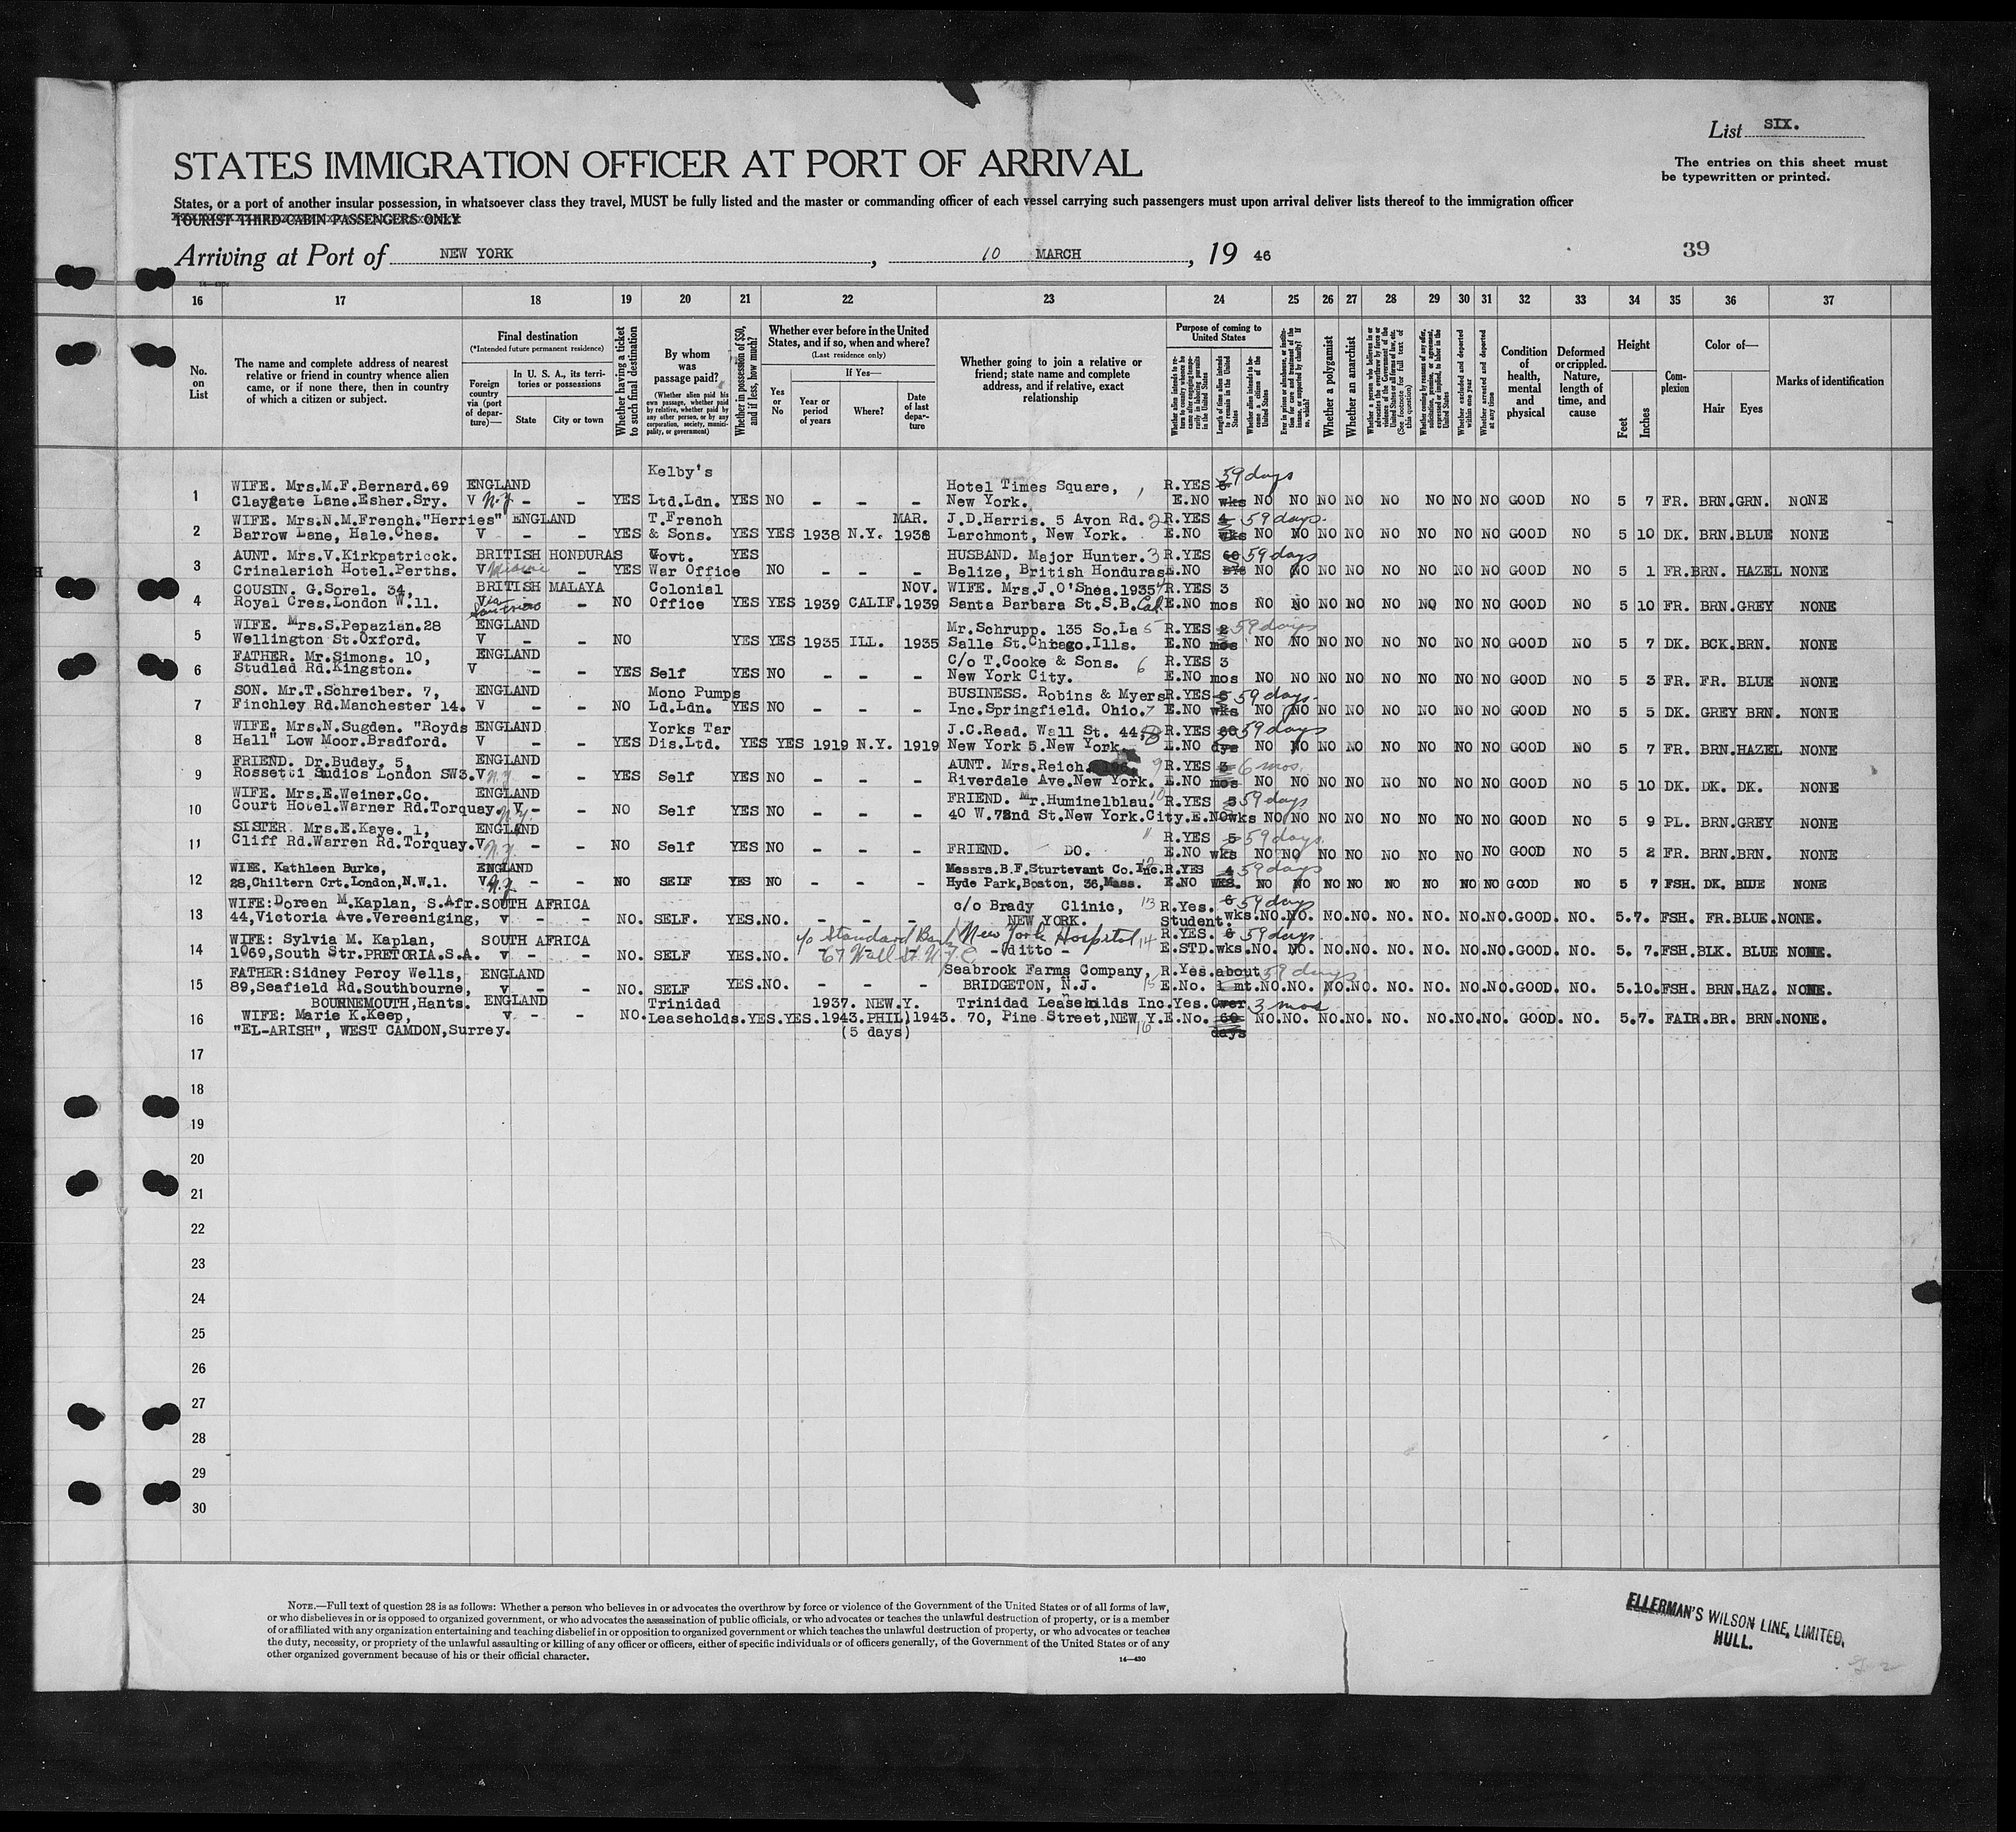 List SIX.
STATES IMMIGRATION OFFICER AT PORT OF ARRIVAL
The entries on this sheet must
be typewritten or printed.
States, or a port of another insular possession, in whatsoever class they travel, MUST be fully listed and the master or commanding officer of each vessel carrying such passengers must upon arrival deliver lists thereof to the immigration officer
TOURIST THIRD-CABIN PASSENGERS ONLY
Arriving at Port of NEW YORK, 10 MARCH, 19 46
39
16 17 18 19 20 21 22 23 24 25 26 27 28 29 30 31 32 33 34 35 36 37
No. on List
The name and complete address of nearest relative or friend in country whence alien came, or if none there, then in country of which a citizen or subject.
Final destination
(*Intended future permanent residence)
Foreign country via (port of departure)—
In U. S. A., its territories or possessions
State
City or town
Whether having a ticket to such final destination
By whom was passage paid?
(Whether alien paid his own passage, whether paid by relative, whether paid by any other person, or by any corporation, society, municipality, or government)
Whether in possession of $50, and if less, how much?
Whether ever before in the United States, and if so, when and where?
(Last residence only)
Yes or No
If Yes—
Year or period of years
Where?
Date of last departure
Whether going to join a relative or friend; state name and complete address, and if relative, exact relationship
Purpose of coming to United States
Whether a polygamist
Whether an anarchist
Condition of health, mental and physical
Deformed or crippled. Nature, length of time, and cause
Height
Feet
Inches
Complexion
Color of—
Hair
Eyes
Marks of identification
Kelby's 59 days
WIFE. Mrs.M.F.Bernard.69 ENGLAND Hotel Times Square, R.YES
1 Claygate Lane.Esher.Sry. V N.Y - - YES Ltd.Ldn. YES NO - - - New York. E.NO wks NO NO NO NO NO NO NO NO GOOD NO 5 7 FR. BRN.GRN. NONE
WIFE. Mrs.N.M.French."Herries" ENGLAND T.French MAR. J.D.Harris. 5 Avon Rd. 2 R.YES 4 59 days.
2 Barrow Lane, Hale.Ches. V - - YES & Sons. YES YES 1938 N.Y. 1938 Larchmont, New York. E.NO wks NO NO NO NO NO NO NO NO GOOD NO 5 10 DK. BRN.BLUE NONE
AUNT. Mrs.V.Kirkpatricck. BRITISH HONDURAS Govt. YES HUSBAND. Major Hunter. 3 R.YES 60 59 days
3 Crinalarich Hotel.Perths. V - YES War Office NO - - - Belize, British Honduras E.NO NO NO NO NO NO NO NO NO GOOD NO 5 1 FR.BRN. HAZEL NONE
COUSIN. G.Sorel. 34, BRITISH MALAYA Colonial NOV. WIFE. Mrs.J.O'Shea.1935 4 R.YES 3
4 Royal Cres.London W.11. Via - NO Office YES YES 1939 CALIF. 1939 Santa Barbara St.S.B.Cal E.NO mos NO NO NO NO NO NO NO NO GOOD NO 5 10 FR. BRN.GREY NONE
WIFE. Mrs.S.Papazian.28 ENGLAND Mr.Schrupp. 135 So.La 5 R.YES 2 59 days
5 Wellington St.Oxford. V - - NO YES YES 1935 ILL. 1935 Salle St.Chicago.Ills. E.NO mos NO NO NO NO NO NO NO NO GOOD NO 5 7 DK. BCK.BRN. NONE
FATHER. Mr.Simons. 10, ENGLAND C/o T.Cooke & Sons. 6 R.YES 3
6 Studlad Rd.Kingston. V - - YES Self YES NO - - - New York City. E.NO mos NO NO NO NO NO NO NO NO GOOD NO 5 3 FR. FR. BLUE NONE
SON. Mr.T.Schreiber. 7, ENGLAND Mono Pumps BUSINESS. Robins & Myers R.YES 59 days.
7 Finchley Rd.Manchester 14. V - - NO Ld.Ldn. YES NO - - - Inc.Springfield. Ohio. 7 E.NO wks NO NO NO NO NO NO NO NO GOOD NO 5 5 DK. GREY BRN. NONE
WIFE. Mrs.N.Sugden. "Royds ENGLAND Yorks Tar J.C.Read. Wall St. 44, 8 R.YES 60 59 days
8 Hall" Low Moor.Bradford. V - - YES Dis.Ltd. YES YES 1919 N.Y. 1919 New York 5.New York. E.NO dys NO NO NO NO NO NO NO NO GOOD NO 5 7 FR. BRN.HAZEL NONE
FRIEND. Dr.Buday. 5, ENGLAND AUNT. Mrs.Reich. 9 R.YES 3 6 mos.
9 Rossetti Sudios London SW3. V N.Y. - - YES Self YES NO - - - Riverdale Ave.New York. E.NO mos NO NO NO NO NO NO NO NO GOOD NO 5 10 DK. DK. DK. NONE
WIFE. Mrs.E.Weiner.Co. ENGLAND FRIEND. Mr.Huminelblau. 10 R.YES 59 days
10 Court Hotel.Warner Rd.Torquay. V N.Y. - - NO Self YES NO - - - 40 W.72nd St.New York.City. E.NO wks NO NO NO NO NO NO NO NO GOOD NO 5 9 PL. BRN.GREY NONE
SISTER. Mrs.E.Kaye. 1, ENGLAND 11 R.YES 5 59 days.
11 Cliff Rd.Warren Rd.Torquay. V N.Y. - - NO Self YES NO - - - FRIEND. DO. E.NO wks NO NO NO NO NO NO NO NO GOOD NO 5 2 FR. BRN.BRN. NONE
WIFE. Kathleen Burke, ENGLAND Messrs.B.F.Sturtevant Co.Inc. 12 R.YES 4 59 days
12 28,Chiltern Crt.London,N.W.1. V N.Y. - - NO SELF YES NO - - - Hyde Park,Boston, 36,Mass. E.NO WKS. NO NO NO NO NO NO NO NO GOOD NO 5 7 FSH. DK. BLUE NONE
WIFE:Doreen M.Kaplan, S.Afr. SOUTH AFRICA c/o Brady Clinic, 13 R.Yes. 6 59 days
13 44,Victoria Ave.Vereeniging, v - - NO. SELF. YES.NO. - - - NEW YORK. Student. wks.NO.NO. NO.NO. NO. NO. NO.NO.GOOD. NO. 5.7. FSH. FR.BLUE.NONE.
WIFE: Sylvia M. Kaplan, SOUTH AFRICA c/o Standard Bank New York Hospital 14 R.YES. 6 59 days
14 1069,South Str.PRETORIA.S.A. v - - NO. SELF YES.NO. 67 Wall St. N.Y.C. - ditto - E.STD.wks.NO. NO. NO.NO. NO. NO. NO.NO.GOOD. NO. 5. 7.FSH.BLK. BLUE NONE.
FATHER:Sidney Percy Wells, ENGLAND Seabrook Farms Company, R.Yes.about 59 days
15 89,Seafield Rd.Southbourne, v - - NO. SELF YES.NO. - - - BRIDGETON, N.J. 15 E.No. 1 mt.NO.NO. NO.NO. NO. NO. NO.NO.GOOD. NO. 5.10.FSH. BRN.HAZ. NONE.
BOURNEMOUTH,Hants. ENGLAND Trinidad 1937. NEW.Y. Trinidad Leaseholds Inc.Yes. Over 3 mos
16 WIFE: Marie K.Keep, v - - NO. Leaseholds.YES.YES.1943.PHIL)1943. 70, Pine Street,NEW Y. E.No. 60 NO.NO. NO.NO. NO. NO.NO.NO. GOOD. NO. 5.7. FAIR.BR. BRN.NONE.
"EL-ARISH", WEST CAMDON,Surrey. (5 days) 16 days
17
18
19
20
21
22
23
24
25
26
27
28
29
30
NOTE.—Full text of question 28 is as follows: Whether a person who believes in or advocates the overthrow by force or violence of the Government of the United States or of all forms of law,
or who disbelieves in or is opposed to organized government, or who advocates the assassination of public officials, or who advocates or teaches the unlawful destruction of property, or is a member
of or affiliated with any organization entertaining and teaching disbelief in or opposition to organized government or which teaches the unlawful destruction of property, or who advocates or teaches
the duty, necessity, or propriety of the unlawful assaulting or killing of any officer or officers, either of specific individuals or of officers generally, of the Government of the United States or of any
other organized government because of his or their official character.
14—430
ELLERMAN'S WILSON LINE, LIMITED,
HULL.